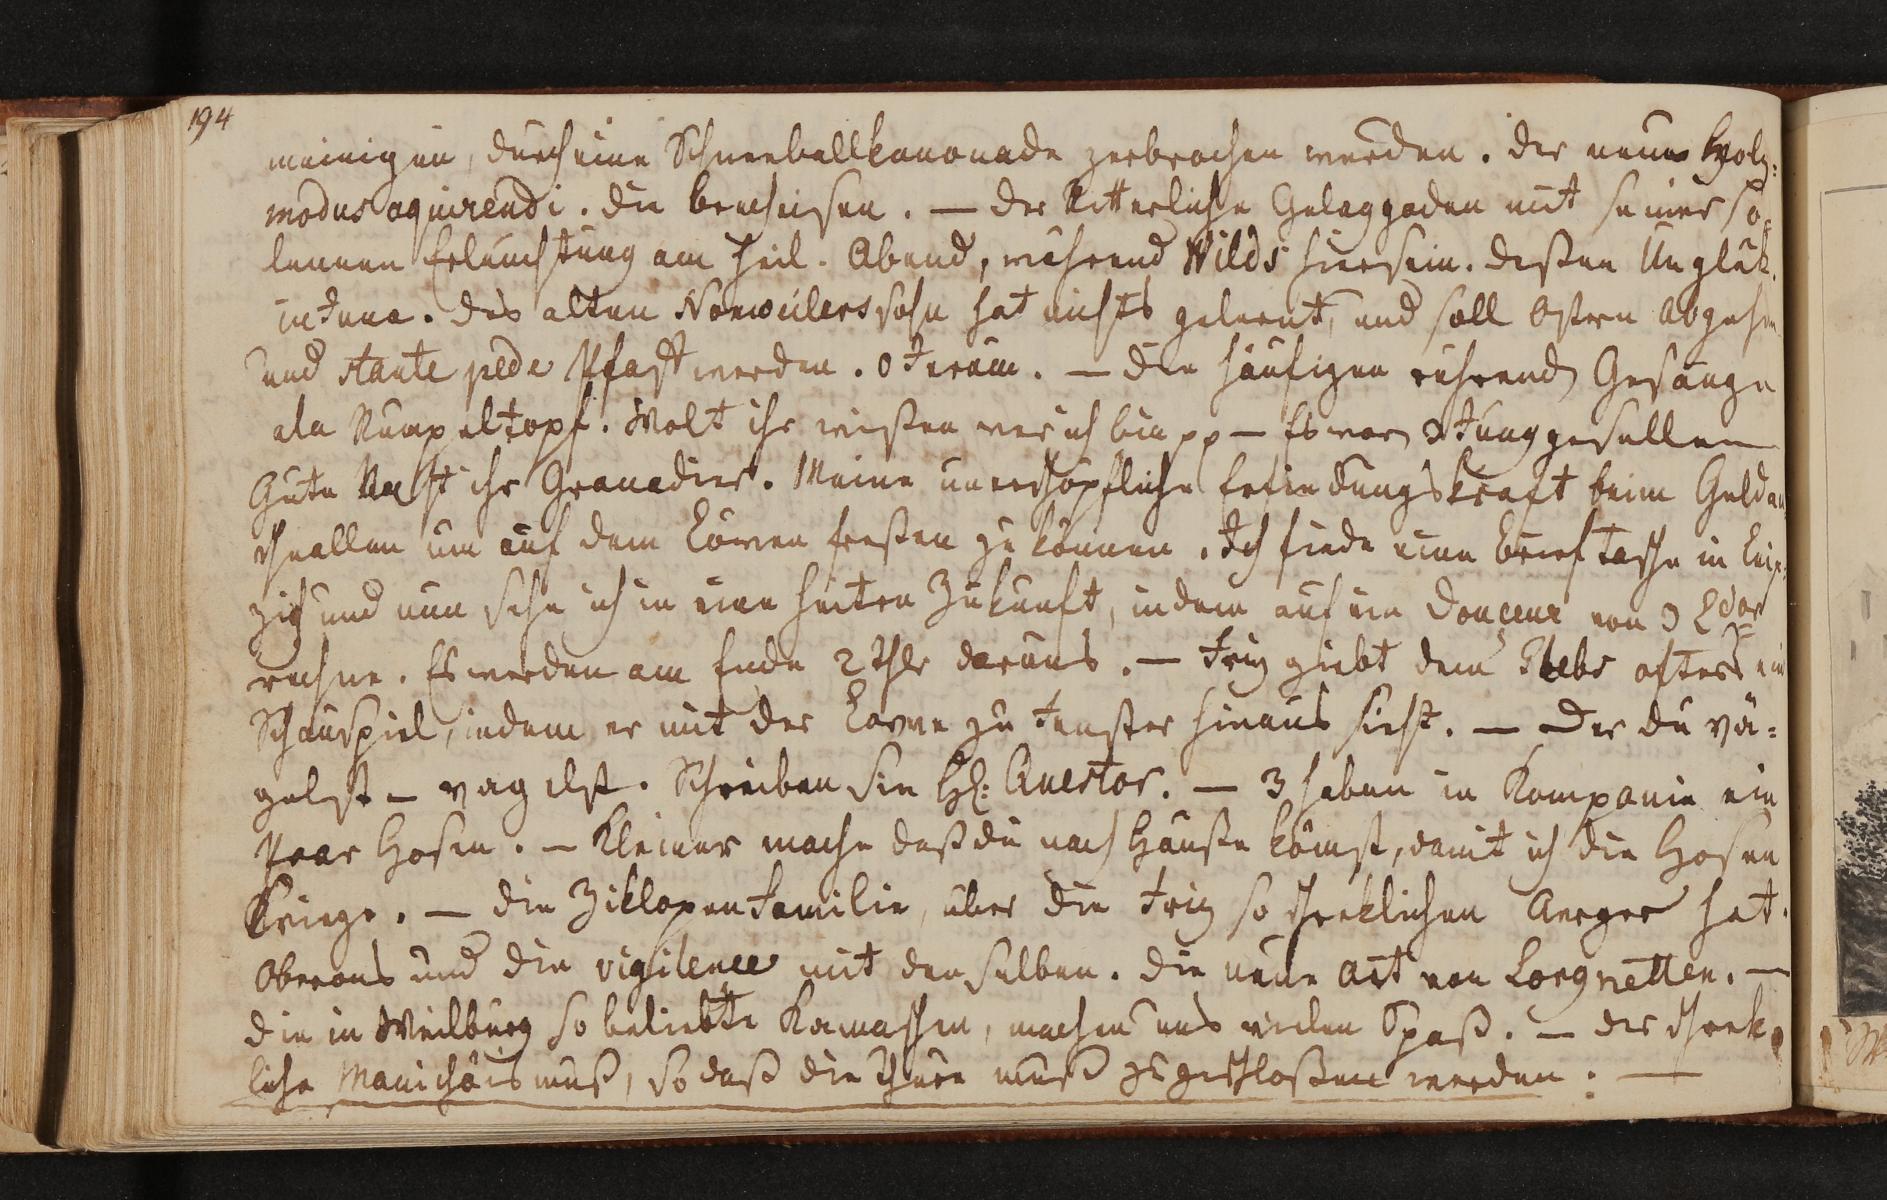 194
meinigen, durch eine Schneeballkanonade zerbrochen werden. der neue Holz:
modus aquirendi. Die bruchisen. — Der Ritterliche Gelaggaden mit seiner so
lennen Erleuchtung am heil. Abend, während Wilds hiersein. deßen Unglük.
in Jena. des alten Norweilers sohn hat nichts gelernt, und soll Ostern abgehen
und stante pede Pfaff werden. O Jerum. — Die häufigen rührend Gesänge
ala Rumpeltopf. Wolt ihr wißen wer ich bin pp — Es warn 3 Junggesellen
Gute Nacht ihr Granadier. Meine unerschöpfliche Erfindungskraft beim Geld an
schnallen um auf dem Löwen freßen zu können. Ich finde eine brieftasche in Leip:
zig und nun sehe ich in eine heitre Zukunft, indem auf ein Douceur von 3 Ldor
rechne. Es werden am Ende 2 Thlr daraus. — Friz giebt dem Plebs öfters ein
Schauspiel, indem er mit der Larve zu Fenster hinaus sieht. — Der du vä:
gelst — vagelst. Schreiben Sie H: Questor. — 3 haben in Kompanie ein
Paar Hosen. — Kleiner mache daß du nach Hauße kömst, damit ich die Hosen
Kriege. — Die Ziklopen Familie, über die Friz so schreklichen Aerger hat.
Oberons und die vigilence mit denselben. Die neue Art von Lorgnetten. —
Die in Weilburg so beliebte Kamaschen, machen uns vielen Spaß. — Der schrek
liche Manichäismuß, so daß die thüre muß zugeschloßen werden. —